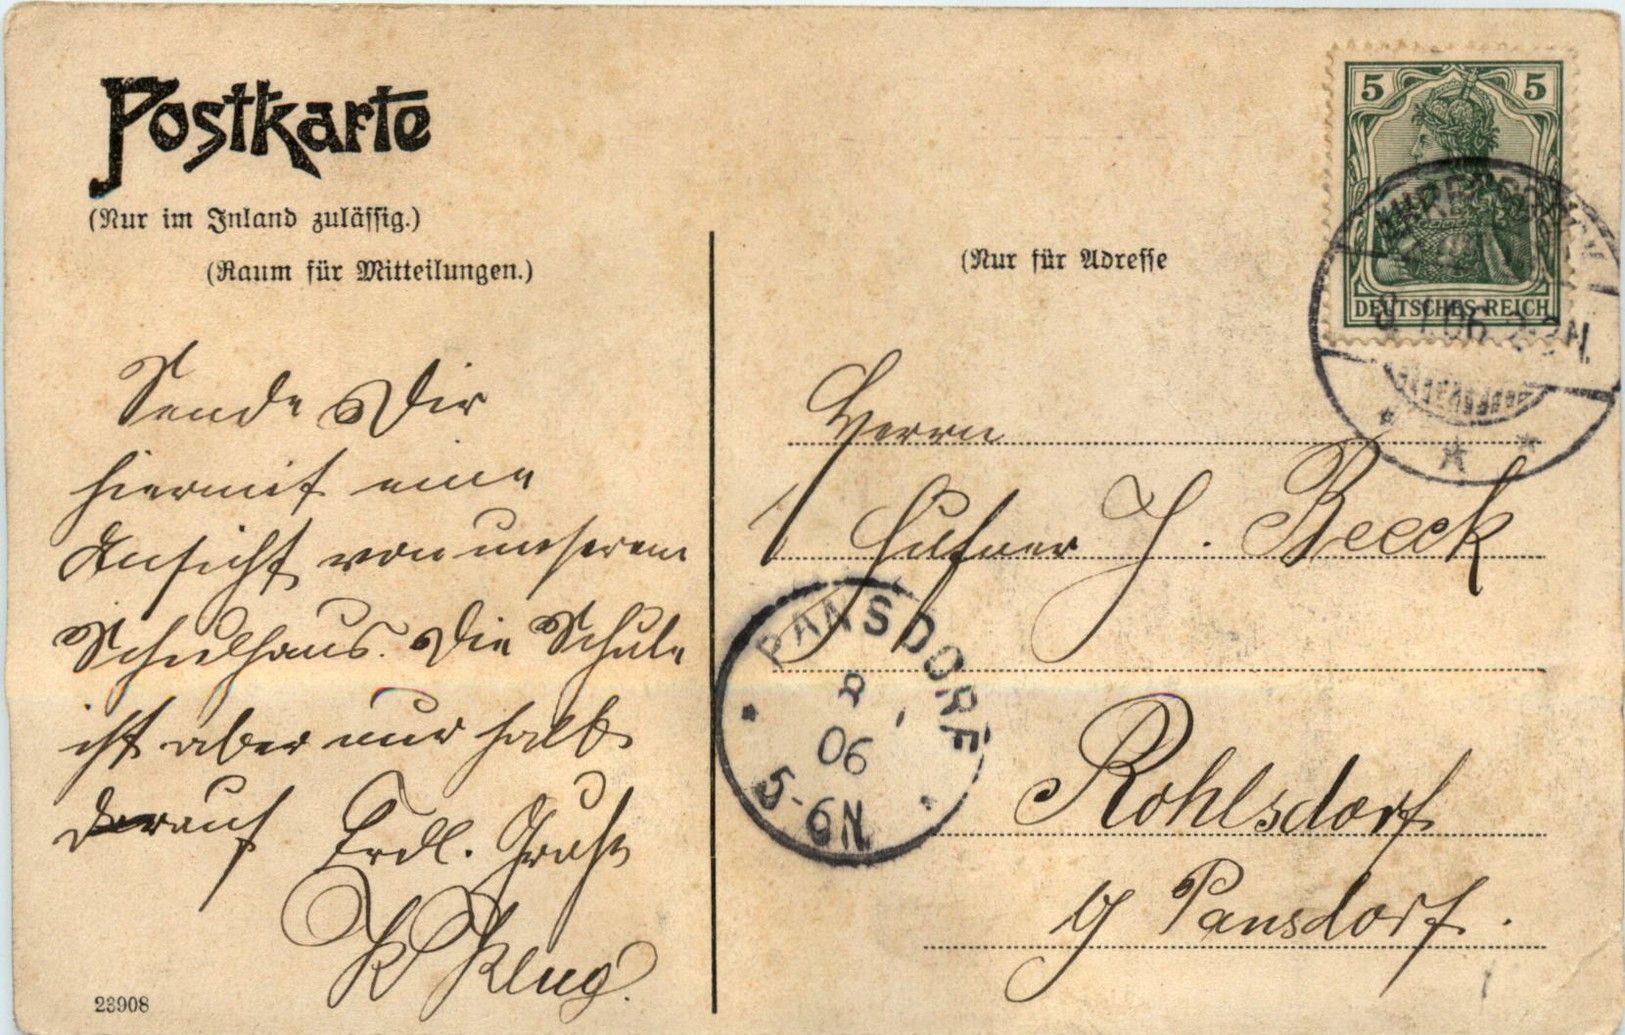 Postkarte
(Nur im Inland zulässig.)
(Raum für Mitteilungen.)
Sende Dir
hiermit eine
Ansicht von unserem
Schulhaus. Die Schule
ist aber nur halb
darauf Frdl. Gruß
Klug.
23908
(Nur für Adresse
5 5
DEUTSCHES REICH
06 2-3N
Herrn
Hufner J. Beeck
PANSDORF
8
06
5-6N
Rohlsdorf
Pansdorf.